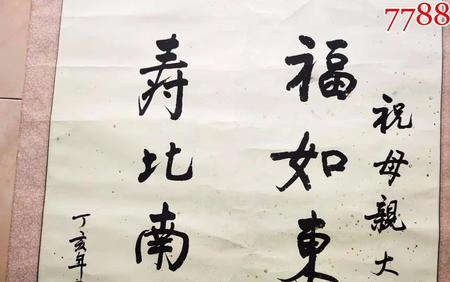 7788
祝母親大
福如東
寿比南
丁亥年